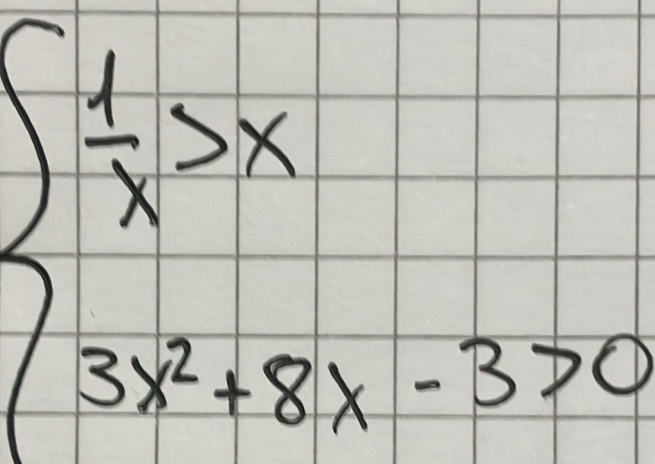 1/x > x
3x² + 8x - 3 > 0